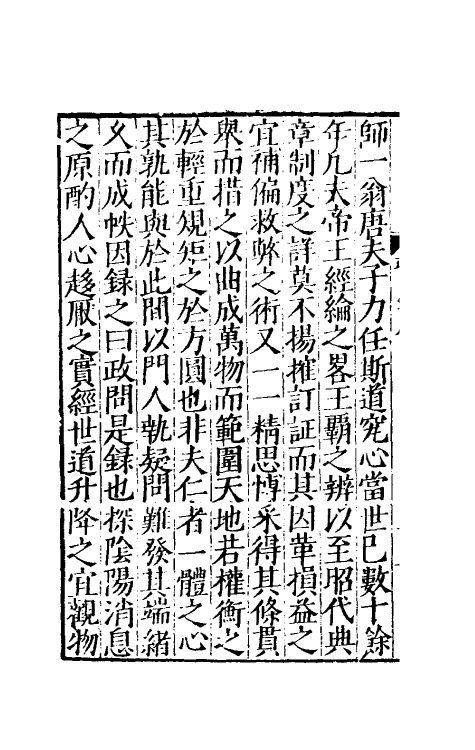 師一翁唐夫子力任斯道究心當世已數十餘
年凡夫帝王經綸之畧王霸之辨以至昭代典
章制度之詳莫不揚搉訂証而其因革損益之
宜補偏救弊之術又一一精思愽采得其條貫
舉而措之以曲成萬物而範圍天地若權衡之
於輕重䂓矩之於方圓也非夫仁者一體之心
其孰能與於此間以門人執疑問難發其端緒
久而成帙因録之曰政問是録也探陰陽消息
之原酌人心趍厭之實經世道升降之宜觀物